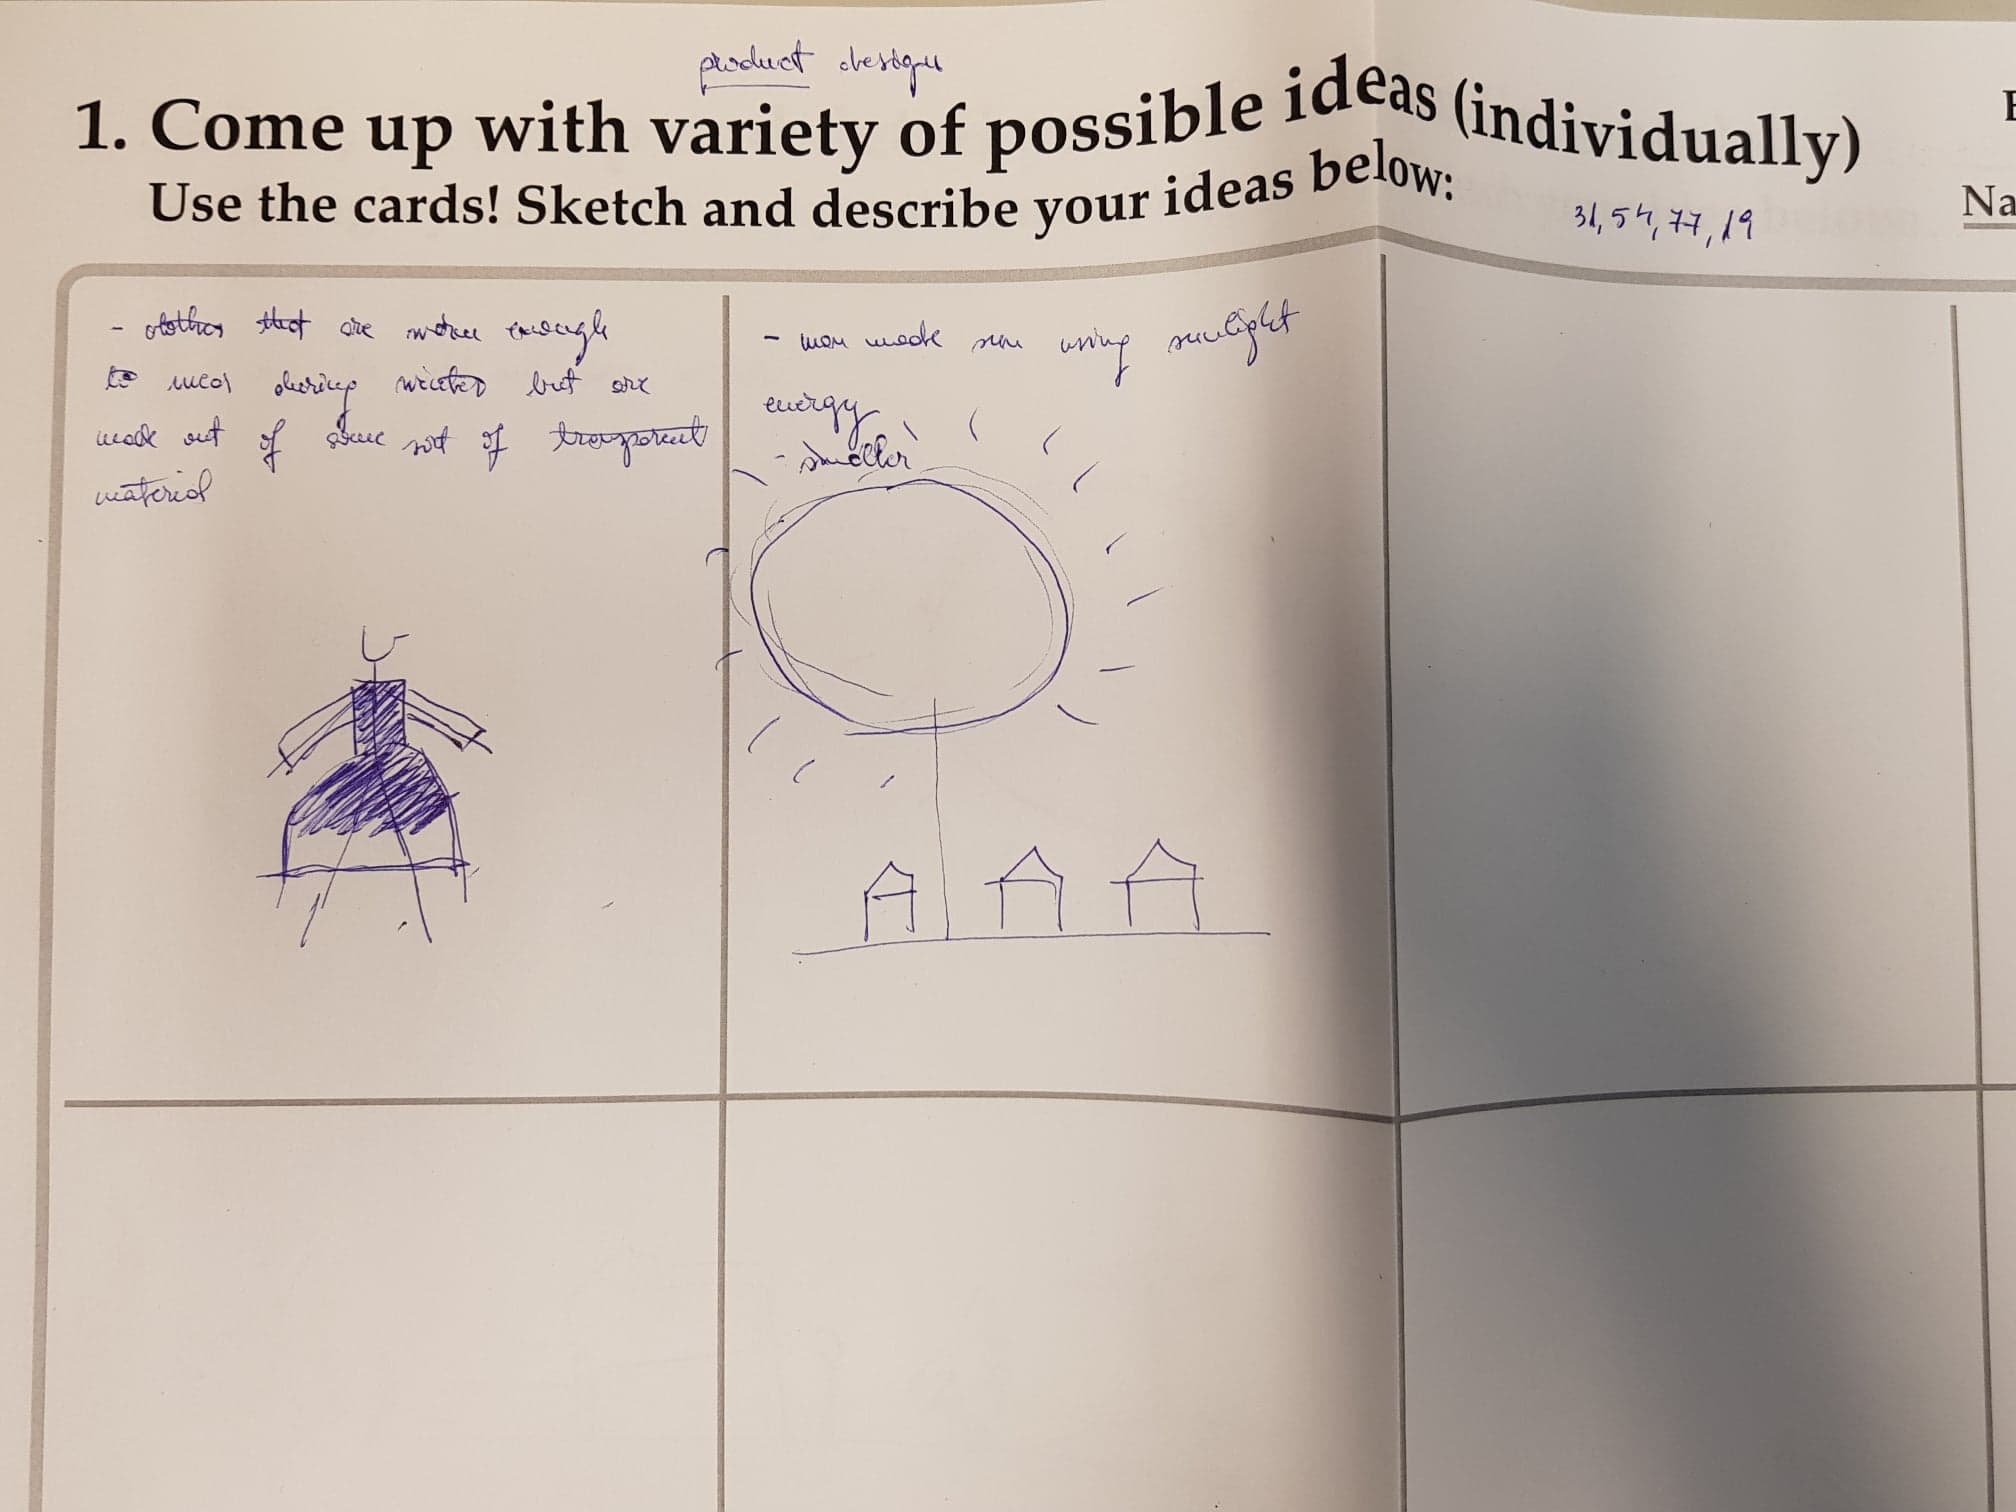 product design
1. Come up with variety of possible ideas (individually)
Use the cards! Sketch and describe your ideas below:
31, 54, 77, 19
Na
- clothes that are warm enough
to wear during winter but are
made out of some sort of transparent
material
- man made sun using sunlight
energy
- smaller